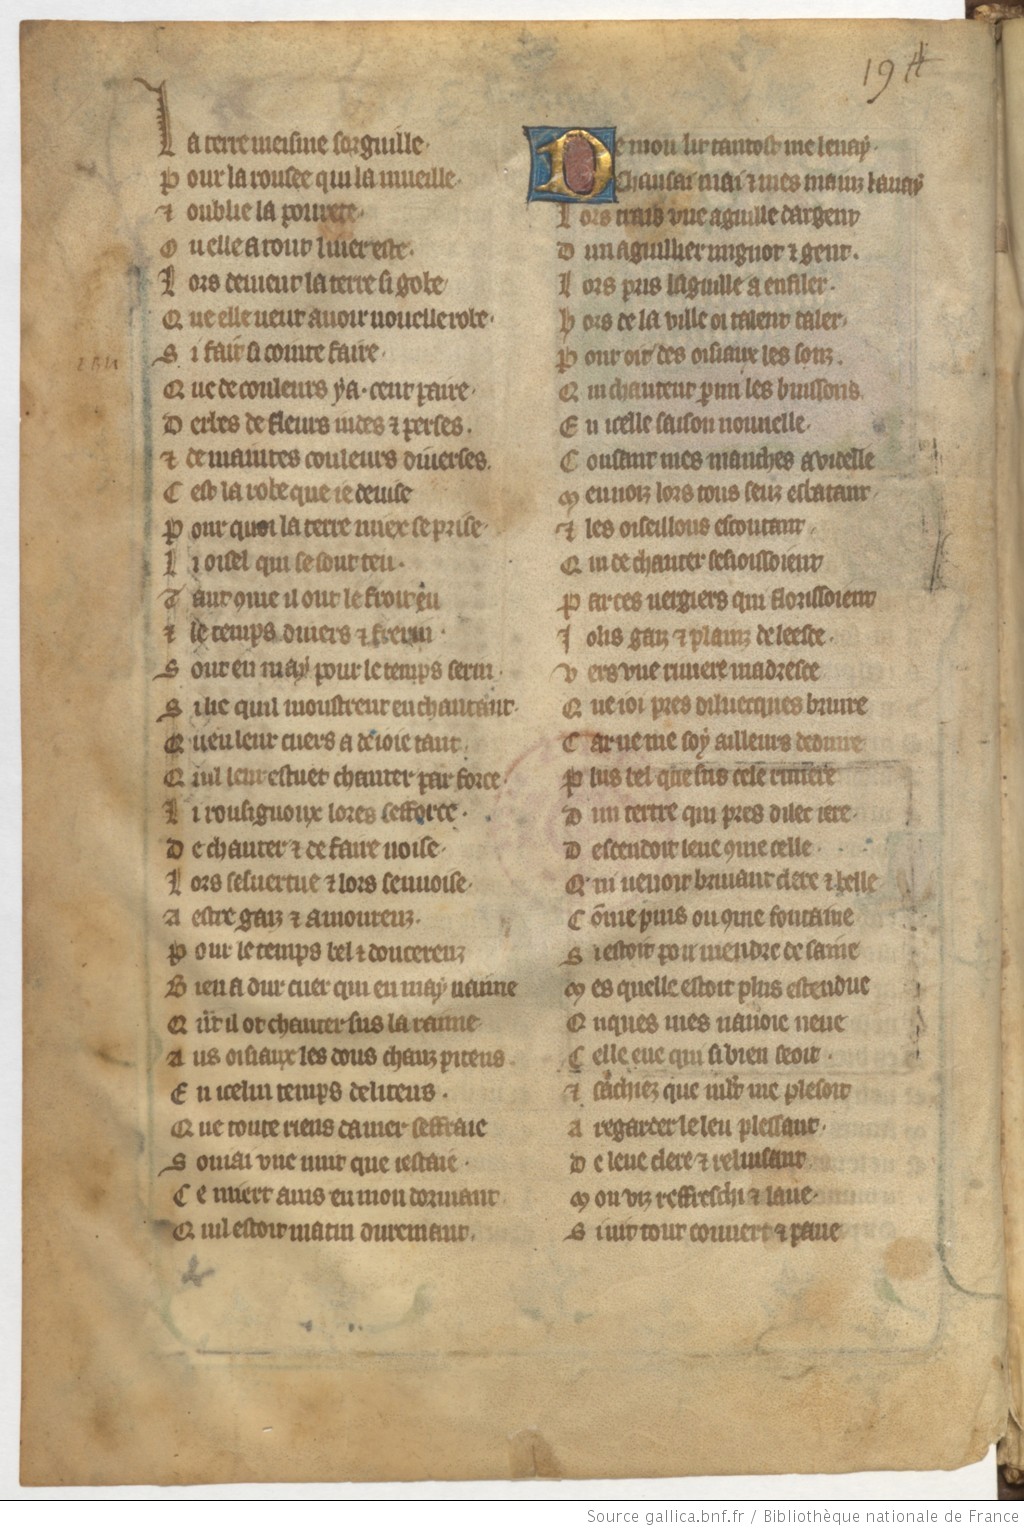 19
L a terre meisme sorguille
P our la rousee qui la mueille
⁊ oublie la pourete
O u elle a tout liuer este
L ors deuient la terre si gobe
Q ue elle ueut auoir nouuelle robe
S i fait si cointe faire
Q ue de couleurs ya cent paire
D erbes de fleurs indes ⁊ perses
⁊ de maintes couleurs diuerses
C est la robe que ie deuise
P our quoi la terre miex se prise
L i oisel qui se sont teu
T ant 9me il ont le froit eu
⁊ le temps diuers ⁊ frerin
S ont en may pour le temps serin
S i lie quil monstrent en chantant
Q uen leur cuers a de ioie tant
Q uil leur estuet chanter par force
L i rousignoux lores sefforce
D e chanter ⁊ de faire noise
L ors sesuertue ⁊ lors senuoise
A estre gaiz ⁊ amoureuz
P our le temps bel ⁊ doucereuz
B ien a dur cuer qui en may naime
Q nt il ot chanter sus la raime
A us oisiaux les dous chanz piteus
E n icelui temps deliteus
Q ue toute riens damer seffraie
S oniai vne nuit que iestaie
C e miert auis en mon dormant
Q uil estoit matin durement
D e mon lit tantost me leuay
Chausai mai ⁊ mes mainz lauay
L ors trais vne aguille dargent
D un aguillier mignot ⁊ gent
L ors pris laguille a enfiler
H ors de la ville oi talent daler
P our oir des oisiaux les sonz
Q ui chantent p mi les buissons
E n icelle saison nouuelle
C ousant mes manches a videlle
M en uoiz lors tous seuz esbatant
⁊ les oiseillons escoutant
Q ui de chanter sesioissoient
P ar ces uergiers qui florissoient
J olis gaiz ⁊ plainz de leesce
V ers vne riuiere madresce
Q ue ioi pres dilluecques bruire
C ar ne me soy ailleurs deduire
P lus bel que sus cele riuiere
D un tertre qui pres dilec iere
D escendoit leue 9me celle
Q ui uenoit bruiant clere ⁊ belle
C ōme puis ou 9me fontaine
S i estoit pou mendre de saine
M es quelle estoit plus estendue
O nques mes nauoie ueue
C elle eue qui si bien seoit
⁊ sachiez que mlt me plesoit
A regarder le leu plessant
D e leue clere ⁊ reluisant
M on viz reffreschi ⁊ laue
S i uit tout couuert ⁊ paue
Source gallica.bnf.fr / Bibliothèque nationale de France